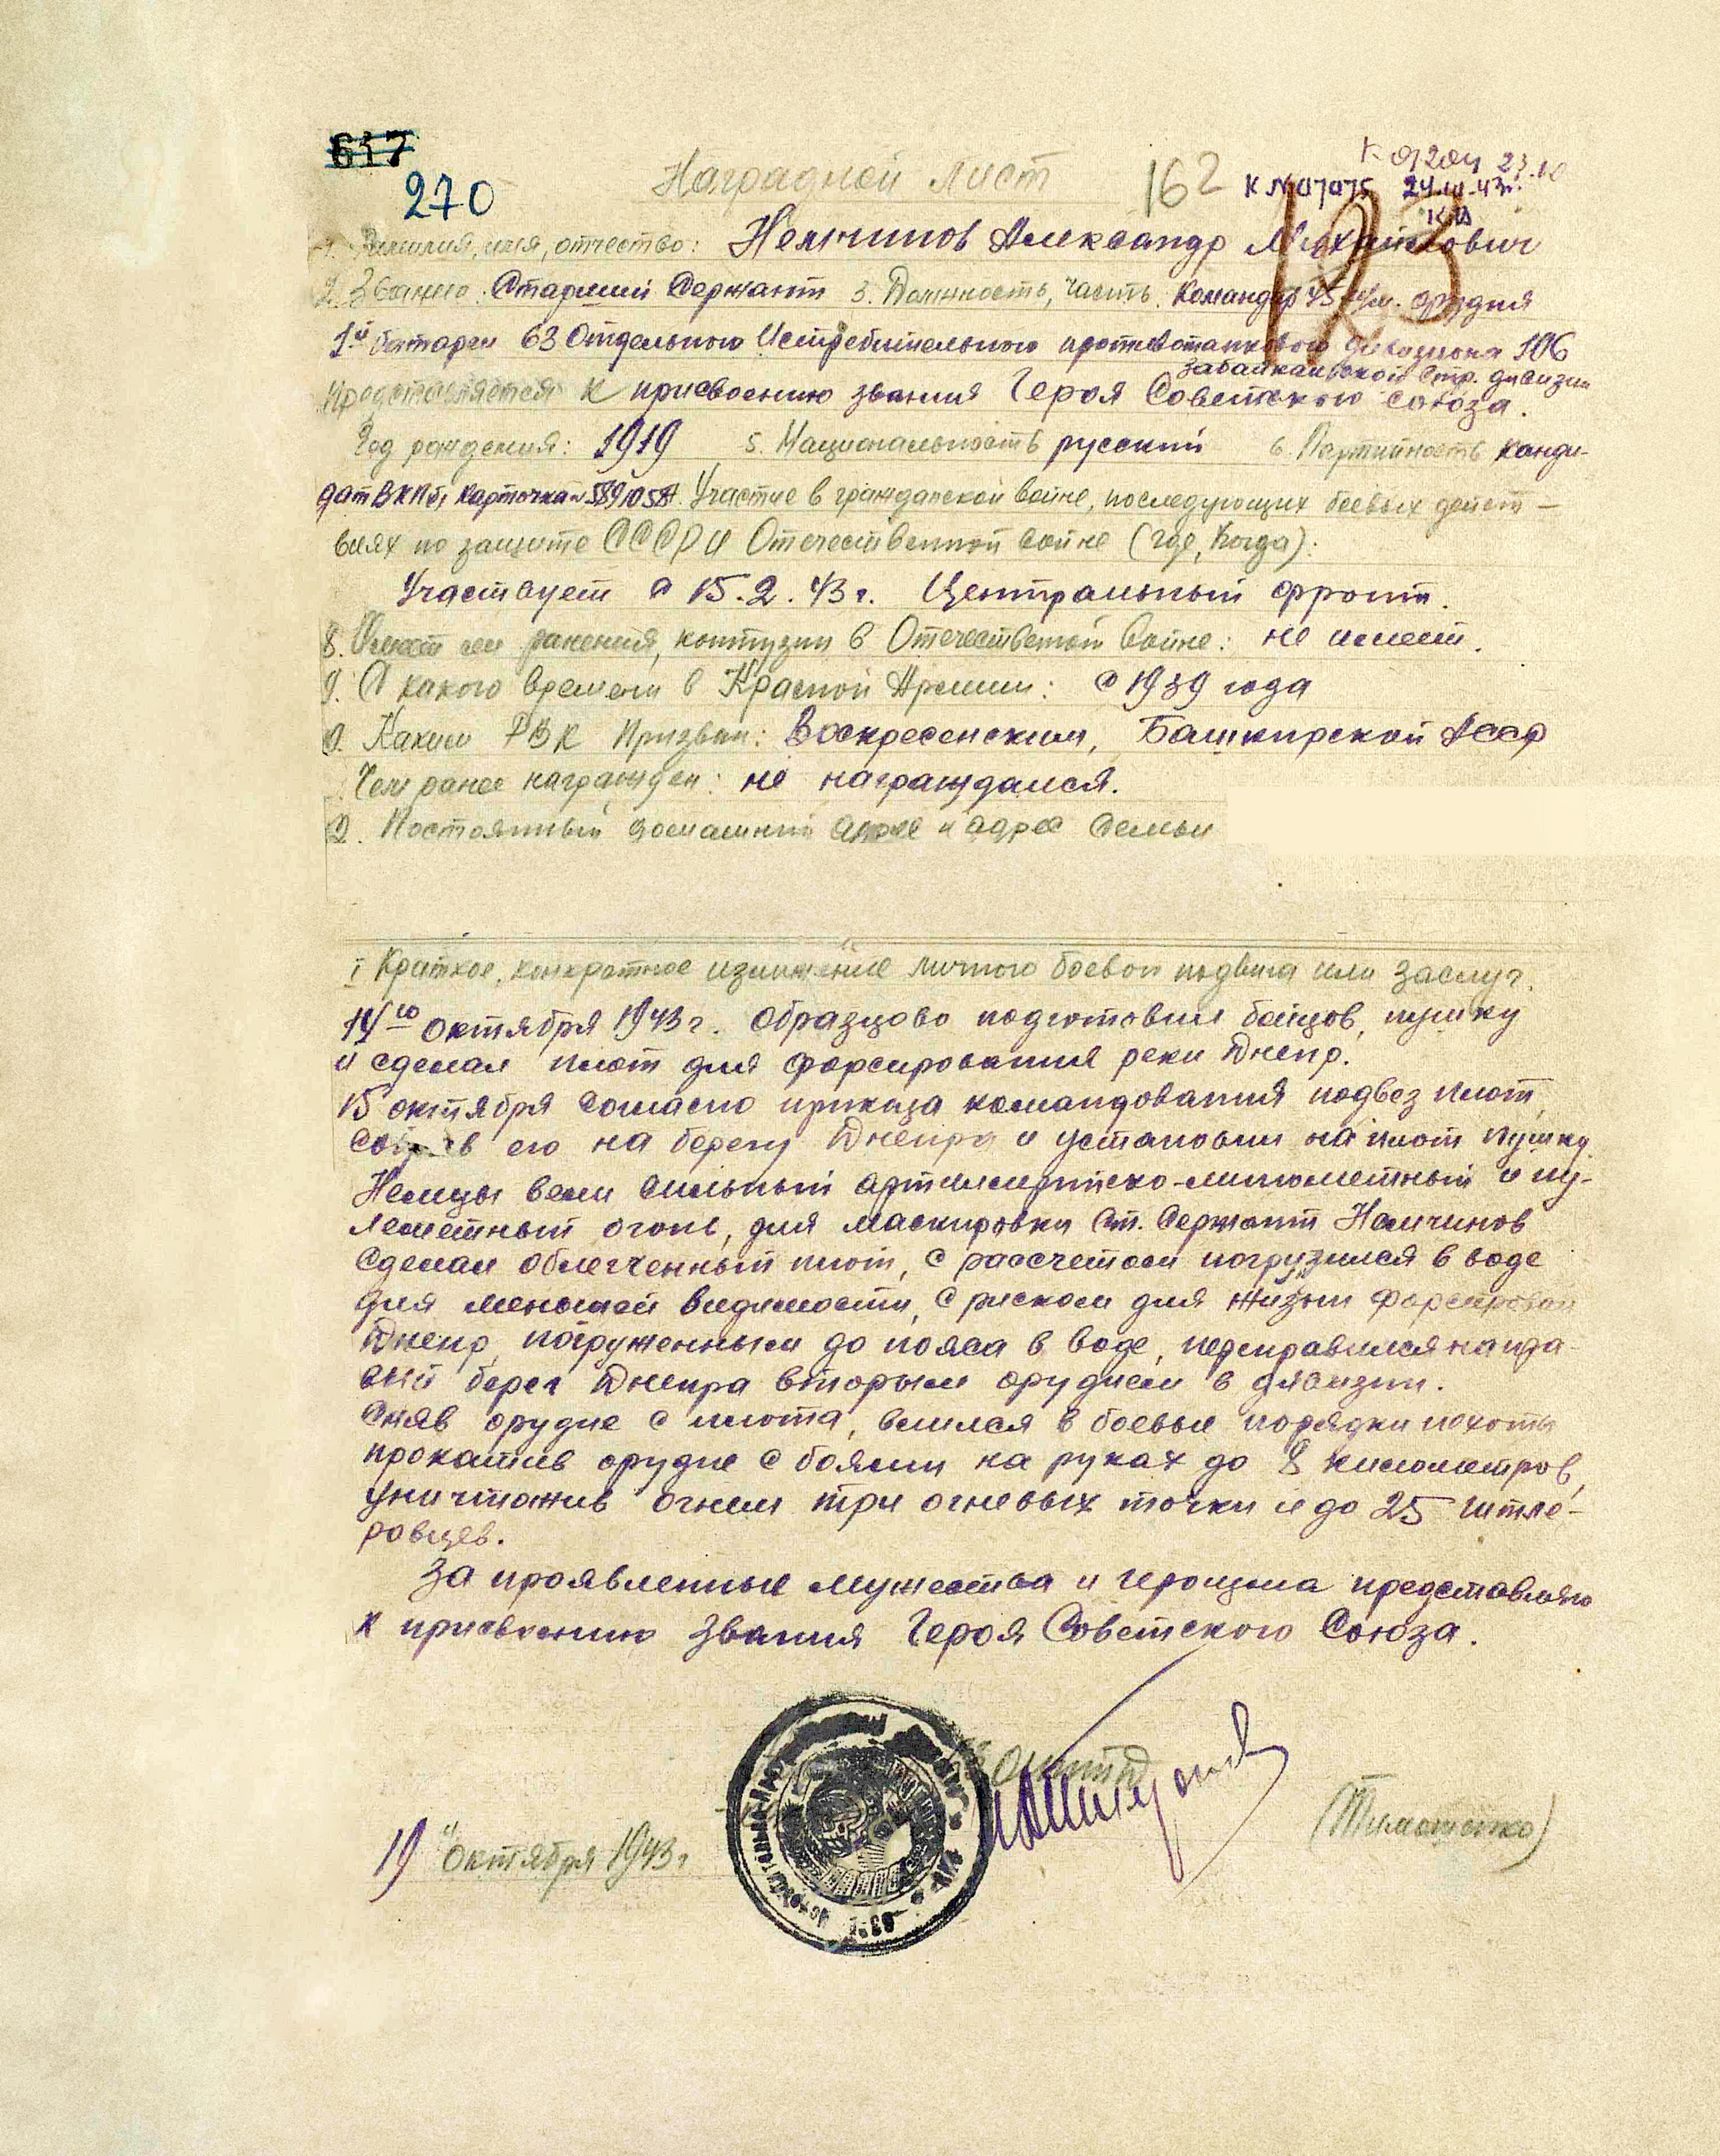 617
270
Наградной лист
162
23.10
К №07075 24.10.43г.
123
1. Фамилия, имя, отчество: Немчинов Александр Михайлович
2. Звание: Старший Сержант 3. Должность, часть. Командир 45 м.м. орудия
1й батареи 63 Отдельного Истребительного противотанкового дивизиона 106
Забайкальской Стр. дивизии
Представляется к присвоению звания Героя Советского Союза.
Год рождения: 1919 5. Национальность русский 6. Партийность канди-
дат ВКПб, карточка № 5891058 7. Участие в гражданской войне, последующих боевых дейст-
виях по защите СССР и Отечественной войне (где, когда):
Участвует с 15.2.43г. Центральный фронт.
8. Имеет ли ранения, контузии в Отечественной войне: не имеет.
9. С какого времени в Красной Армии: с 1939 года
0. Каким РВК призван: Воскресенским, Башкирской АССР
Чем ранее награжден: не награждался.
2. Постоянный домашний адрес и адрес семьи
I Краткое, конкретное изложение личного боевого подвига или заслуг.
14го октября 1943г. образцово подготовил бойцов, пушку
и сделал плот для форсирования реки Днепр.
15 октября согласно приказа командования подвез плот,
собрав его на берегу Днепра и установил на плот пушку.
Немцы вели сильный артиллерийско-минометный и пу-
леметный огонь, для маскировки Ст. Сержант Немчинов
сделал облегченный плот, с рассчетом погрузился в воде
для меньшей видимости, с риском для жизни форсировал
Днепр, погруженным до пояса в воде, переправился на пра-
вый берег Днепра вторым орудием в дивизии.
Сняв орудие с плота, влился в боевые порядки пехоты
прокатив орудие с боями на руках до 8 километров,
уничтожив огнем три огневых точки и до 25 гитле-
ровцев.
За проявленные мужества и героизма представляю
к присвоению звания Героя Советского Союза.
19" октября 1943г
(Тимошенко)